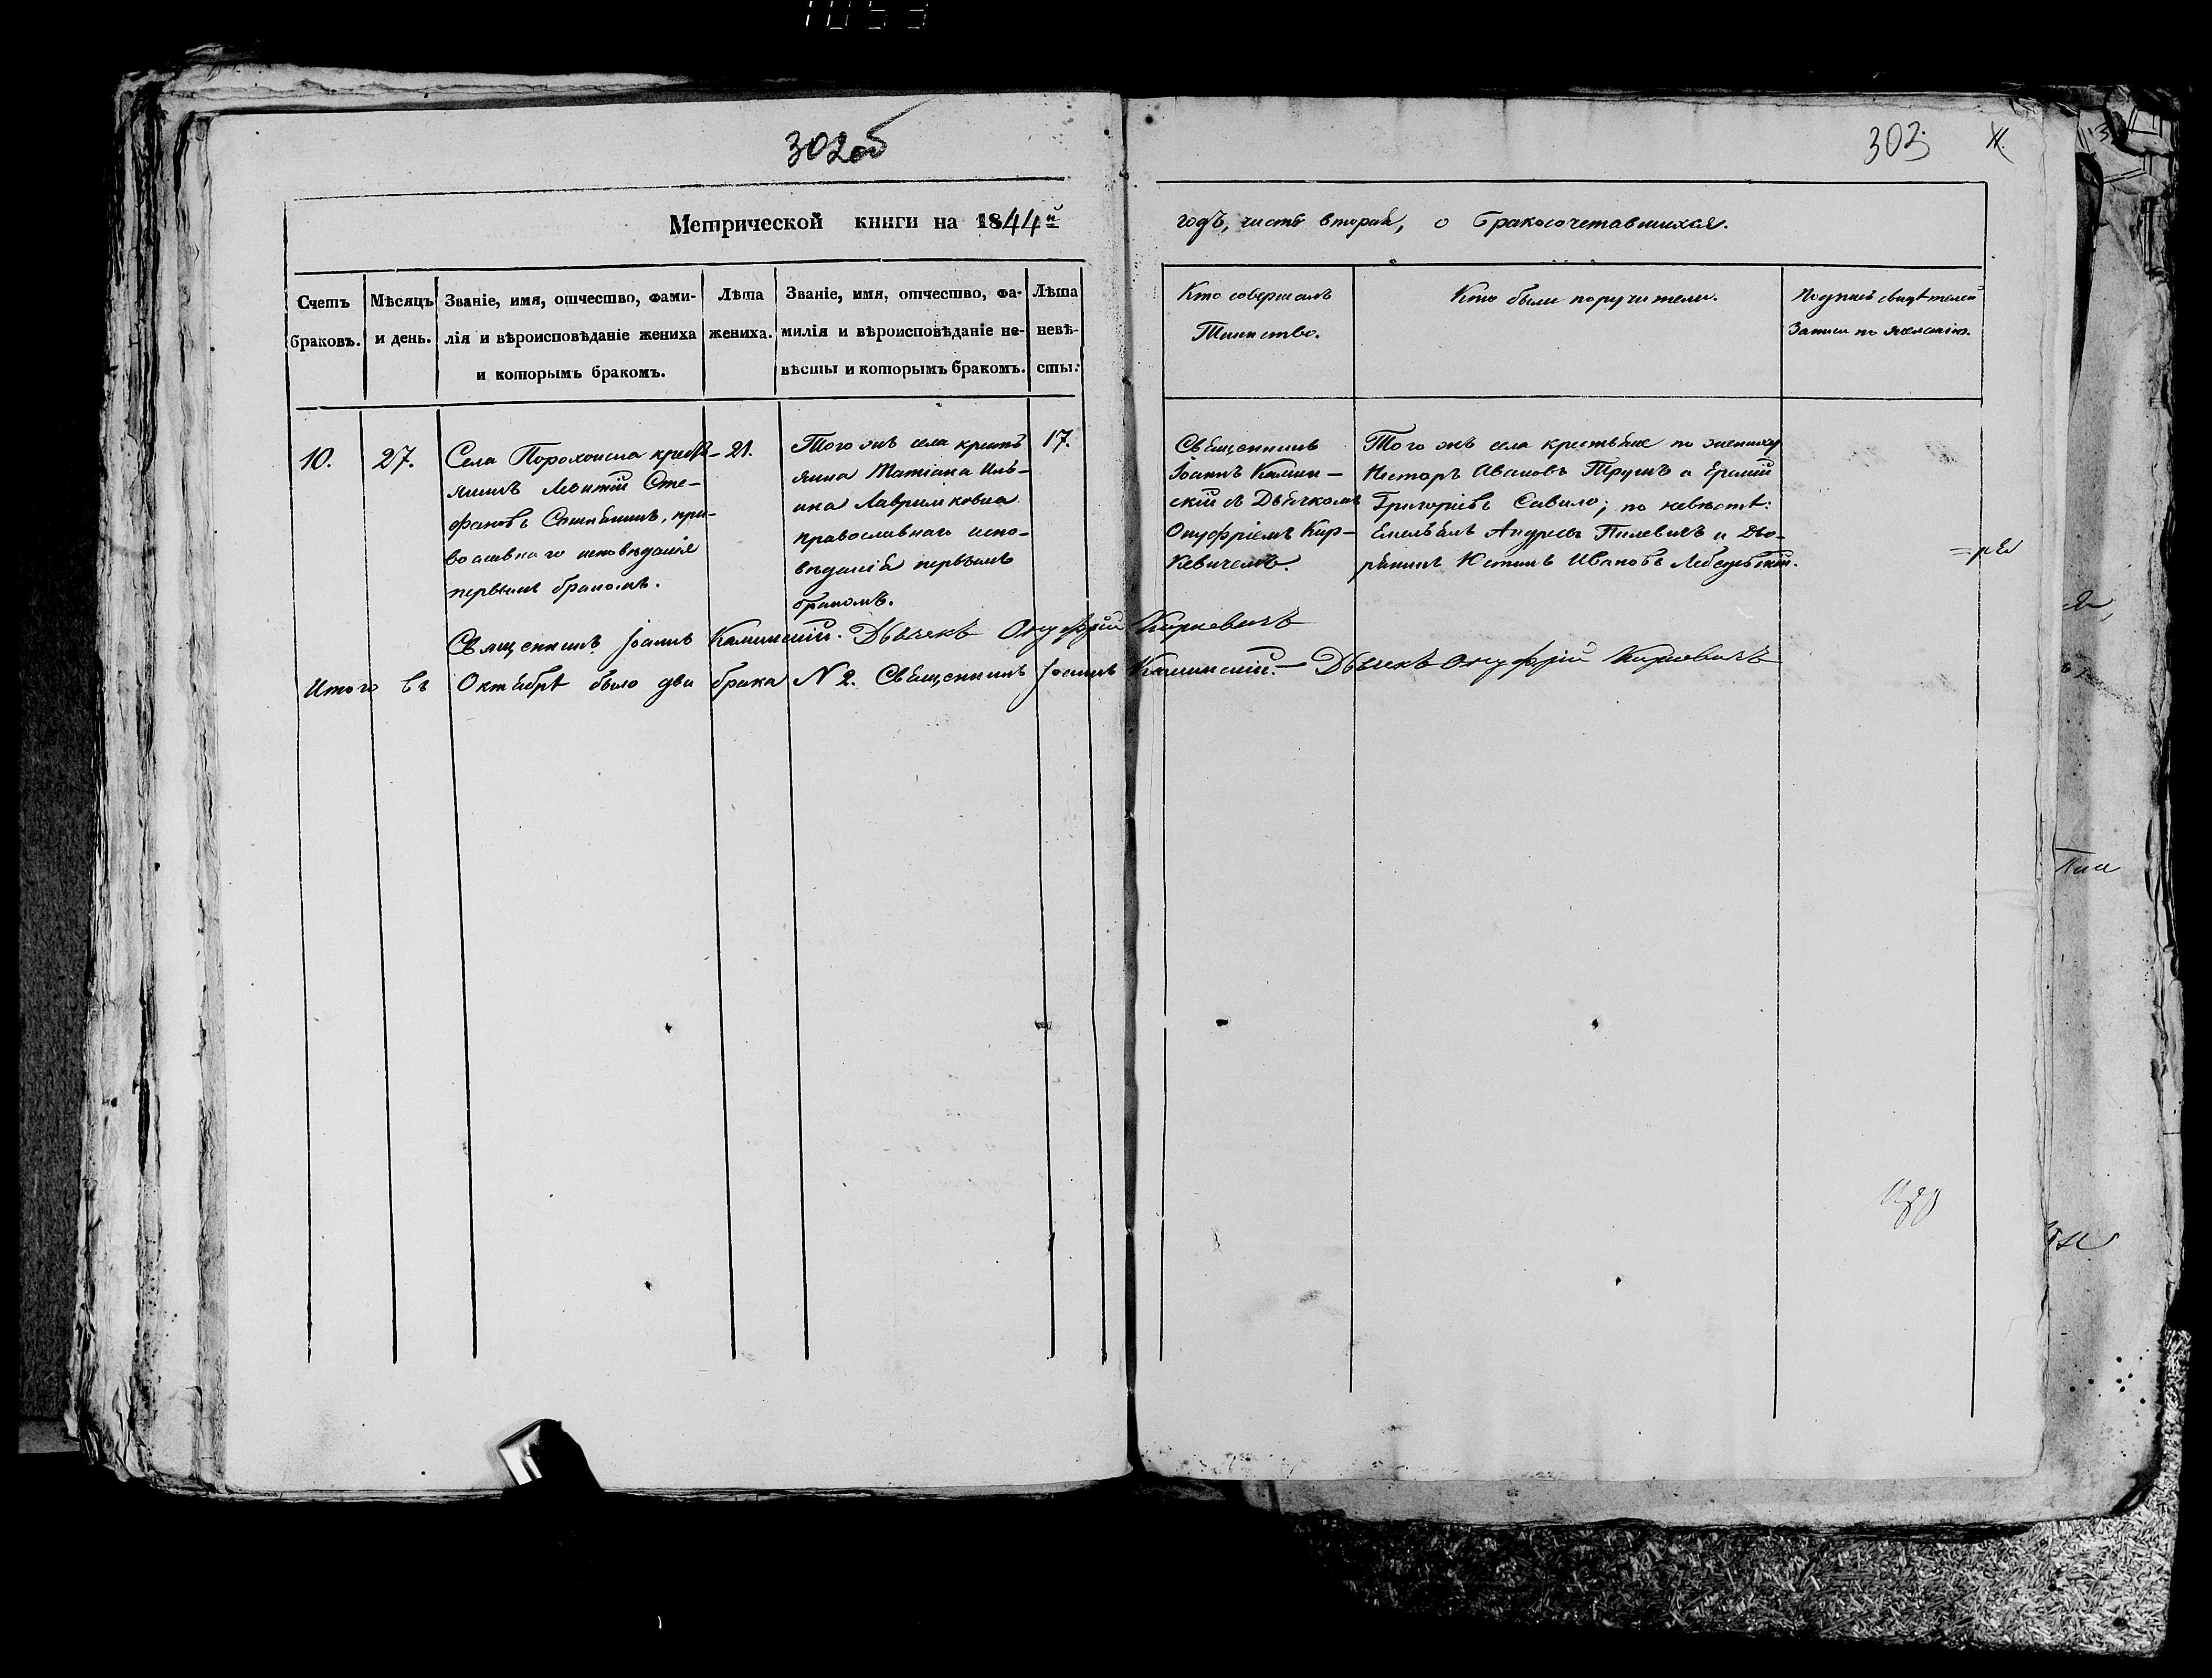 302об
303
Метрической книги на 1844й
годъ, часть вторая, о бракосочетавшихся.
Счетъ браковъ.
Мѣсяцъ и день.
Званіе, имя, отчество, фами-
лія и вѣроисповѣданіе жениха
и которымъ бракомъ.
Лѣта
жениха.
Званіе, имя, отчество, фа-
милія и вѣроисповѣданіе не-
вѣсты и которымъ бракомъ.
Лѣта
невѣ-
сты.
Кто совершалъ
Таинство.
Кто были поручители.
Подпись свидѣтелей
записи по желанію.
10.
27.
Села Порохонска крестья-
янинъ Леонтій Сте-
фановъ православнаго исповѣданія
первымъ бракомъ.
21.
Того жъ села крестья-
янка Татіана Иль-
ина
православнаго испо-
вѣданія первымъ
бракомъ.
17.
Священникъ
Іоаннъ Камин-
скій съ Дьячкомъ
Онуфріемъ Кир-
кевичемъ
Того жъ села крестьяне по жениху
Несторъ Ивановъ Трушъ и Еремій
Григоріевъ Савило; по невѣстѣ:
Емельянъ Андреевъ Пилевичъ и Дво-
рянинъ Юстинъ Ивановъ
Священникъ Іоаннъ Каминскій. Дьячекъ Онуфрій Киркевичъ
Итого въ Октябрѣ было два брака № 2. Священникъ Іоаннъ Каминскій.— Дьячекъ Онуфрій Киркевичъ